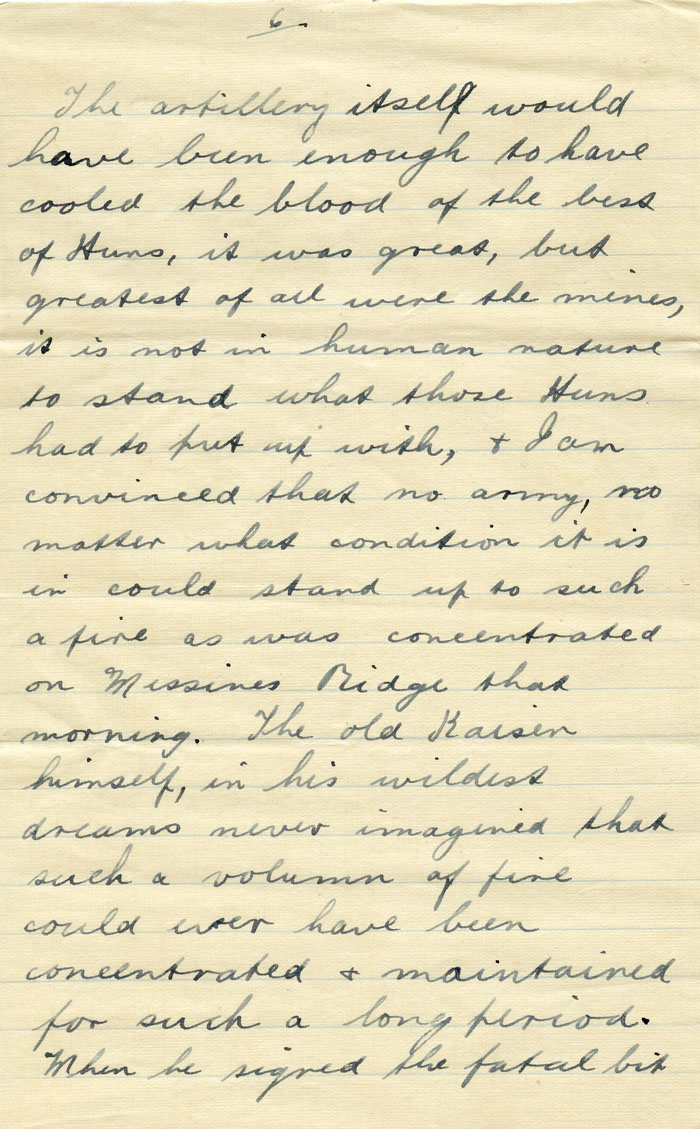 6.
The artillery itself would
have been enough to have
cooled the blood of the best
of Huns, it was great, but
greatest of all were the mines,
it is not in human nature
to stand what those Huns
had to put up with, & I am
convinced that no army, no
matter what condition it is
in could stand up to such
a fire as was concentrated
on Messines Ridge that
morning. The old Kaiser
himself, in his wildest
dreams never imagined that
such a volumn of fire
could ever have been
concentrated & maintained
for such a long period.
When he signed the fatal bit